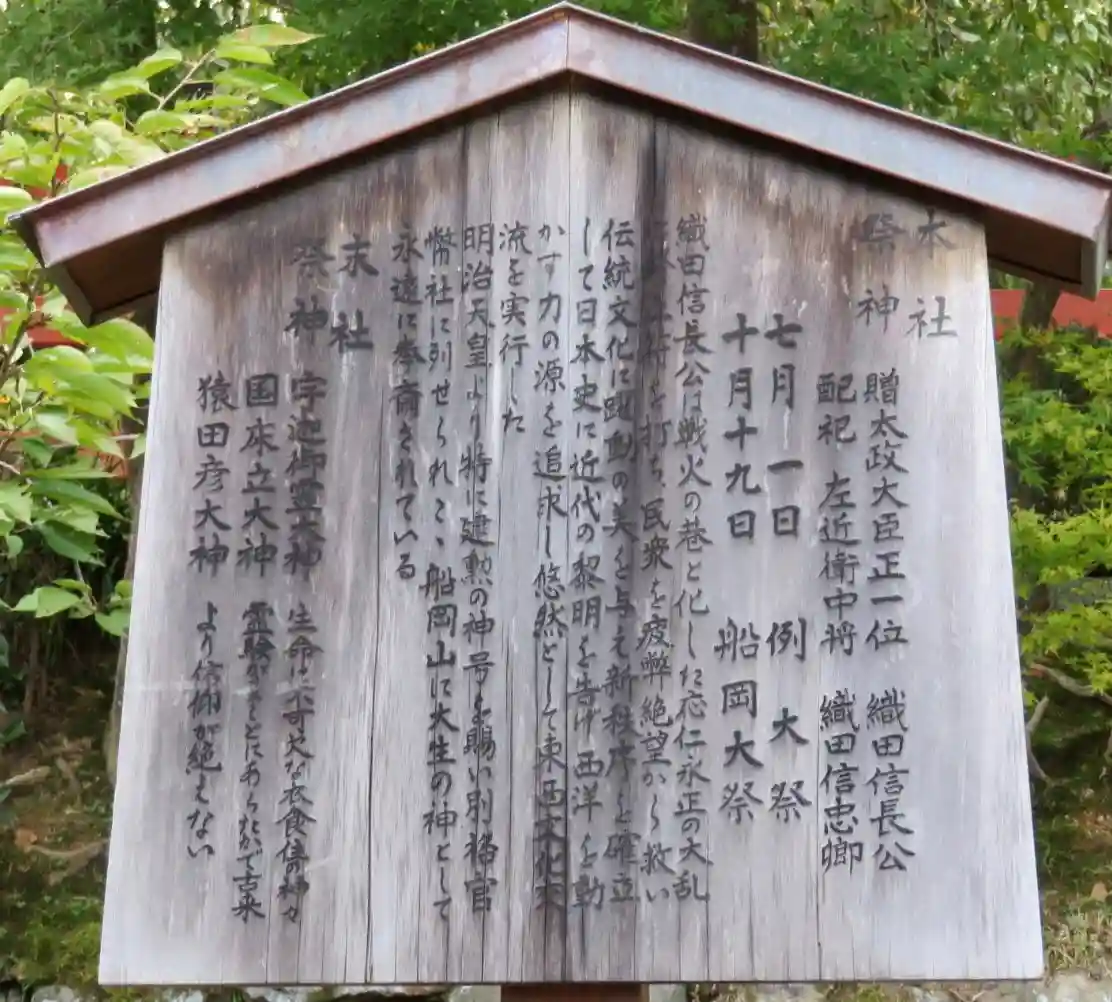 本社
祭神 贈太政大臣正一位 織田信長公
配祀 左近衛中将 織田信忠卿
七月一日 例大祭
十月十九日 船岡大祭
織田信長公は戦火の巷と化した応仁永正の大乱
を打ち、民衆を疲弊絶望から救い
伝統文化に躍動の美を与え新秩序を確立
して日本史に近代の黎明を告げ西洋を動
かす力の源を追求し悠然として東西文化交
流を実行した
明治天皇より特に建勲の神号を賜い別格官
幣社に列せられここ船岡山に大生の神として
永遠に奉斎されている
末社
祭神 宇迦御霊大神 生命に不可欠な衣食住の神々
国床立大神 霊験がまことにあらたかで古来
猿田彦大神 より信仰が絶えない